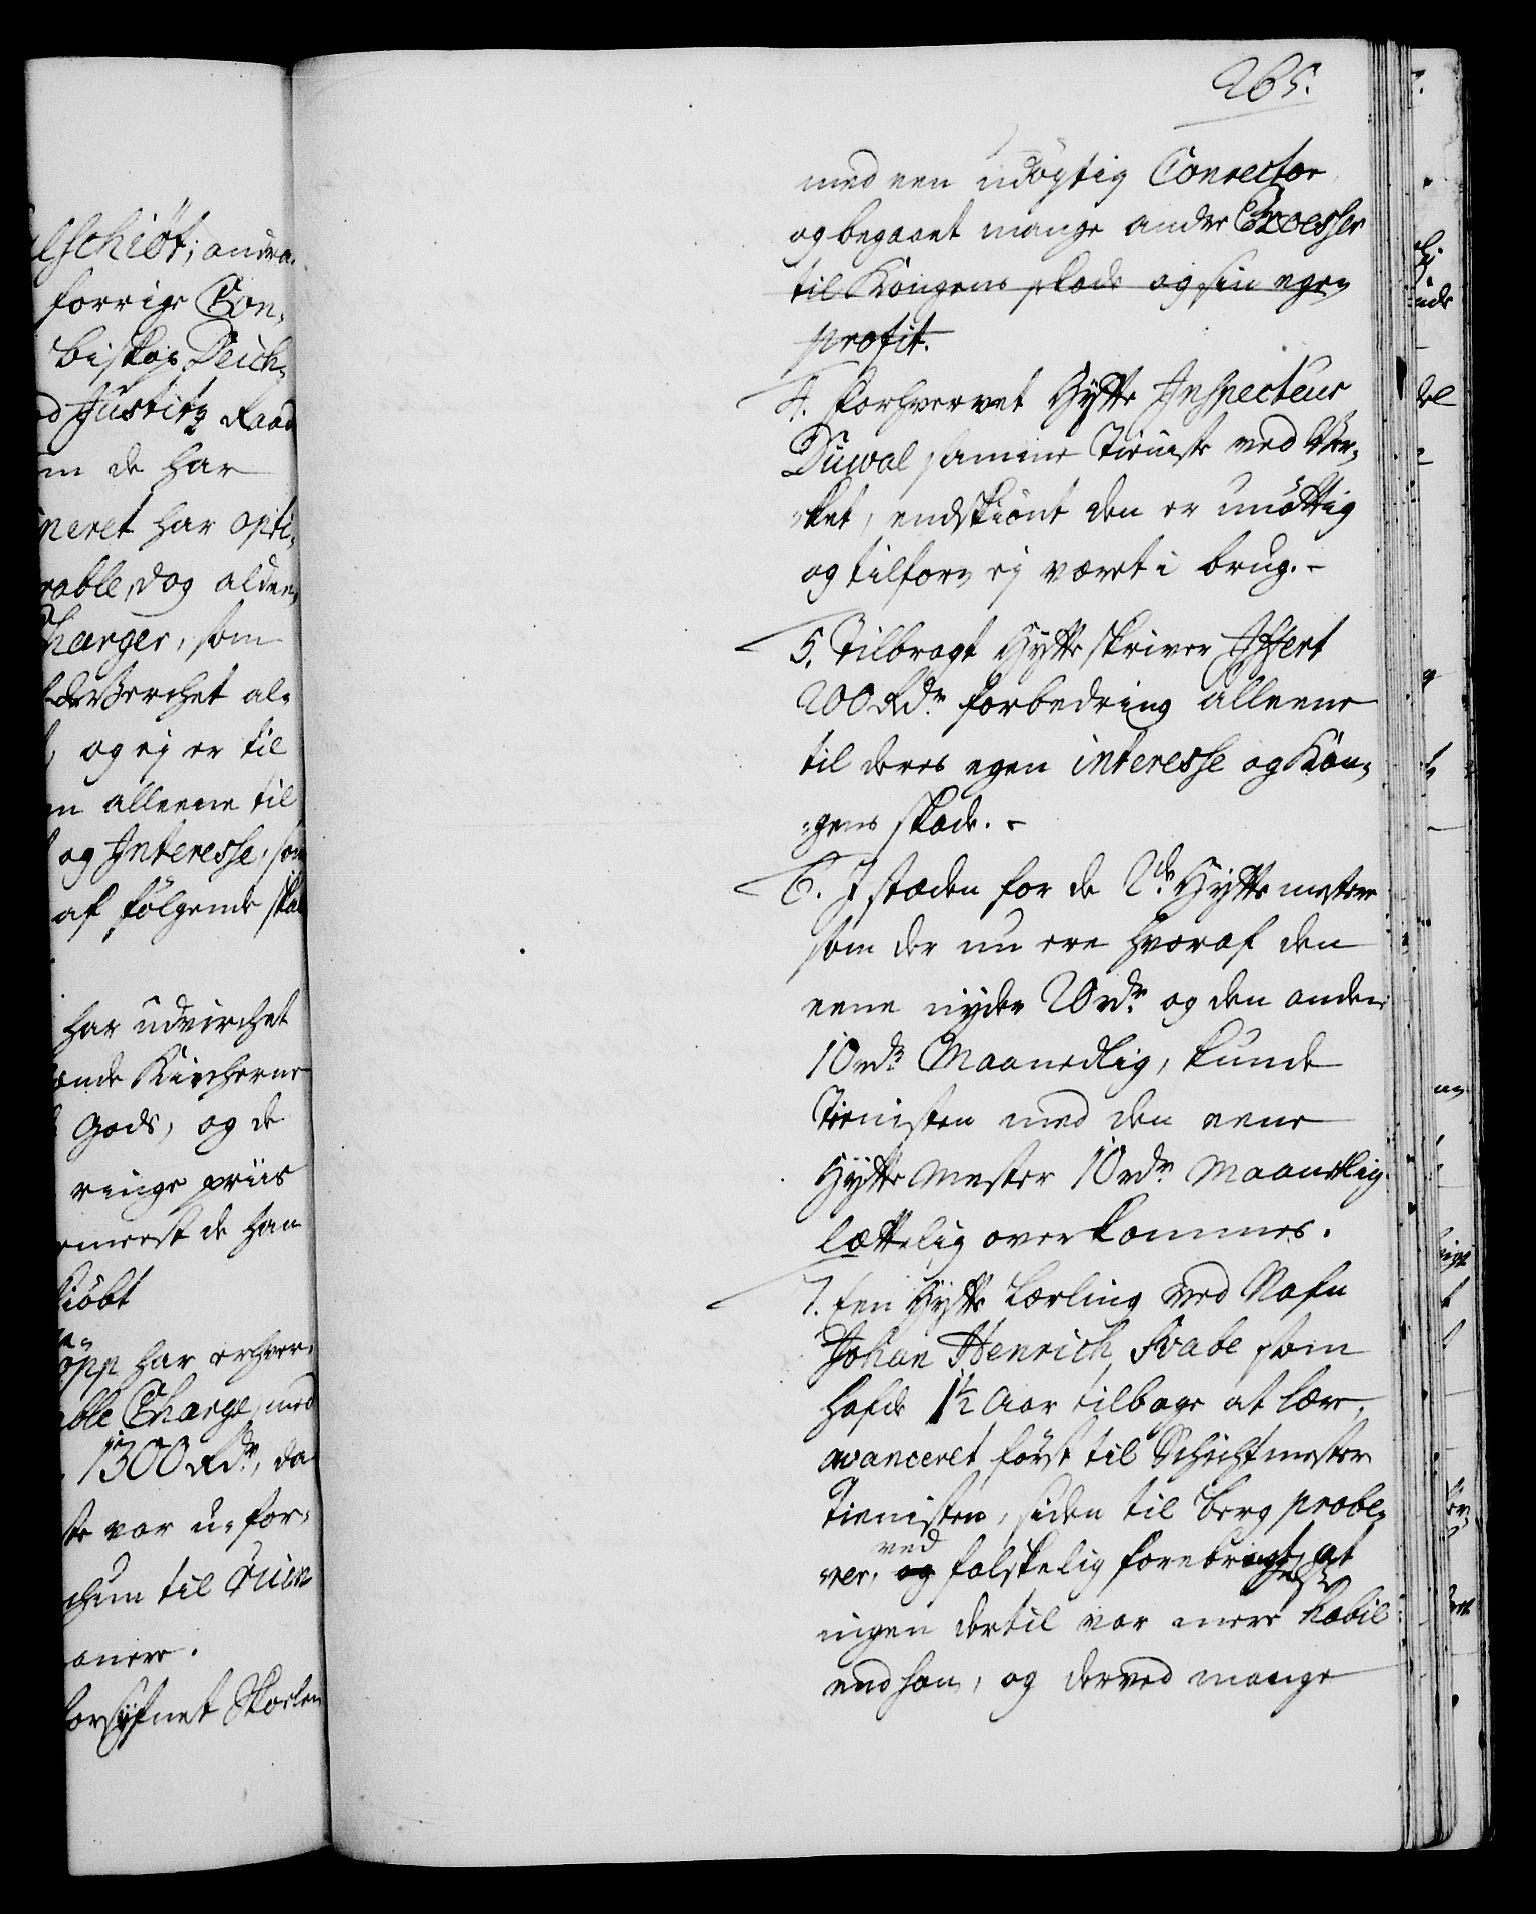 265.
med een udøgtig Conrector
og begaaet mange andre Excesser
til Kongens skade og sin egen
profit.
4. Forhvervet Hytte Inspecteur
Duwal samme Tieniste ved Ver-
ket, endskiønt den er unøttig
og tilforn ej været i brug. -
5. Tilbragt Hytteskriver Iffert
200 Rdr. forbedring alleene
til deres egen interesse og Kon-
gens skade. -
6. I stæden for de 2de Hytte mestere
som der nu ere hvoraf den
eene nyder 20 rdr. og den anden
10 rdr. Maanedlig, kunde
Tienisten med den eene
Hytte Mester 10 rdr. Maanedlig
lættelig overkommes.
7. Een Hytte Lærling ved Nafn
Johan Henrich Svabe som
hafde 1½ Aar tilbage at lære,
avanceret først til Schichtmester
Tienisten, siden til Berg probe-
rer, og ved falskelig forebringelse at
ingen dertil var mere habil
end han, og derved mange
elschiøt; andra-
forrige Con-
biskop Deich-
d Justitz Raad
m de har
neret har opti-
rable, dog alden-
Charger, som
Verchet al-
og ej er til
en alleene til
og Interesse, som
af følgende skal
har udvirchet
ende Kircherne
Gods, og de
ringe priis
meest de han
kiøbt
öpp har erhver-
able Charge, med
1300 Rdr., da
ste var u-for-
chum til Ruin
anere.
forsyfnet Skolen